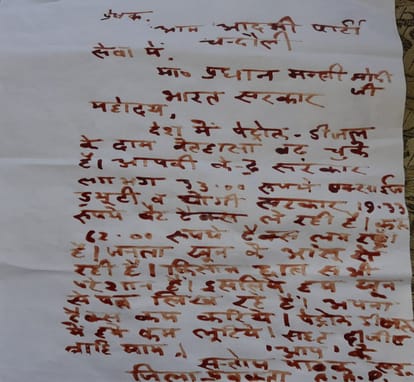 प्रेषक.
आम आदमी पार्टी
चन्दौली
सेवा में.
मा० प्रधान मन्त्री मोदी जी
भारत सरकार
महोदय,
देश में पेट्रोल. डीजल
के दाम बेतहासा बढ़ चुके
है। आपकी केन्द्र सरकार
लगभग 33.00 रूपये एक्साईज
ड्यूटी व योगी सरकार 19.33
रूपये वैट टैक्स ले रही है।
62.00 रूपये टैक्स लग रहा
है। जनता खून के आंसू रो
रही है। किसान हाल सभी
परेशान है। इसलिये हम खून
से पत्र लिख रहे है। अपना
टैक्स कम करिये। पेट्रोल डीजल
आप के
सन्तोष
जिला